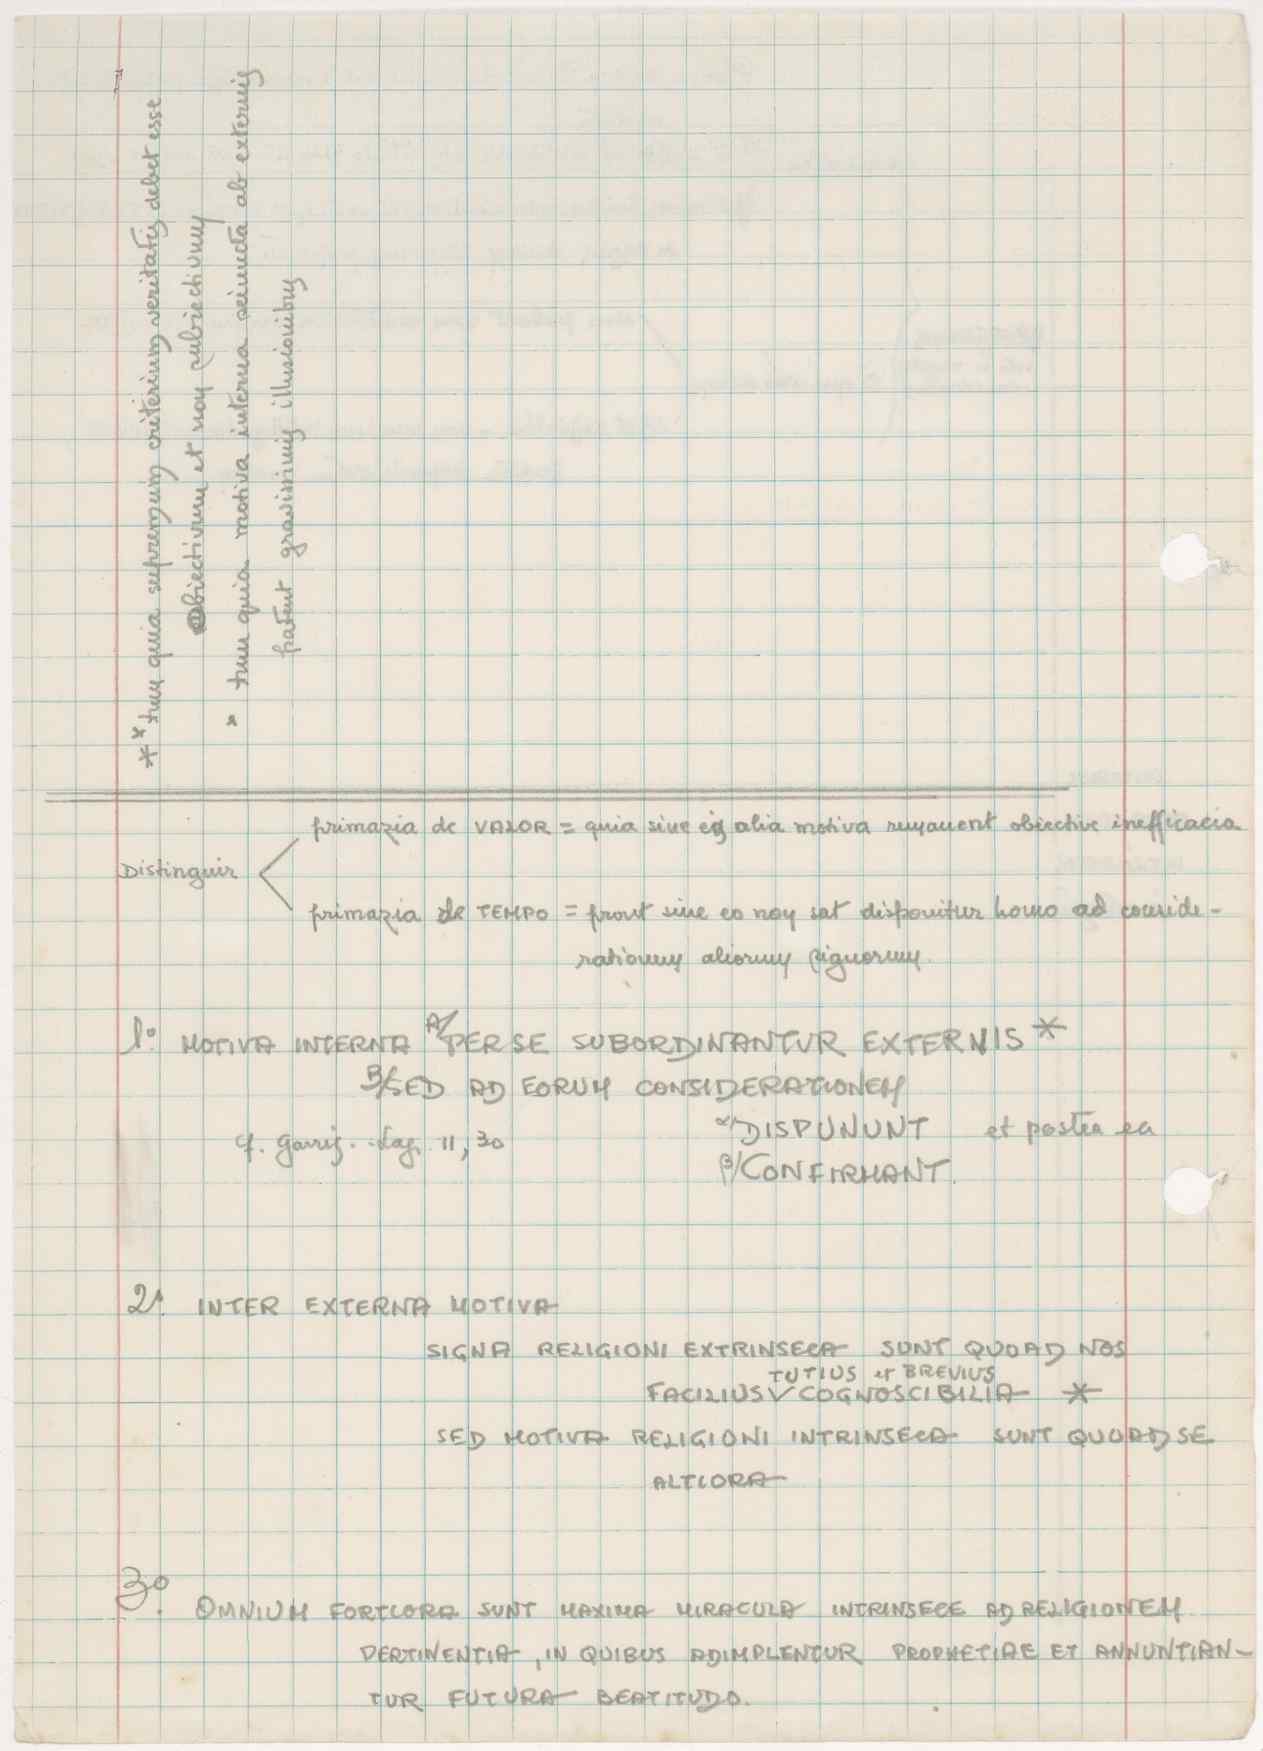 ** tum quia supremum criterium veritatis debet esse
obiectivum et non subiectivum
* tum quia motiva interna seiuncta ab externis
patent gravissimis illusionibus
Distinguir
primazia de VALOR = quia sine eis alia motiva remanent obiective inefficacia
primazia de TEMPO = prout sine eo non sat disponitur homo ad conside-
rationem aliorum signorum.
1º MOTIVA INTERNA A/ PER SE SUBORDINANTUR EXTERNIS *
B/ SED AD EORUM CONSIDERATIONEM
α/ DISPUNUNT et postea ea
cf. Garrig. Lag. 11, 30
β/ CONFIRMANT.
2º. INTER EXTERNA MOTIVA
SIGNA RELIGIONI EXTRINSECA SUNT QUOAD NOS
TUTIUS et BREVIUS
FACILIUS V COGNOSCIBILIA *
SED MOTIVA RELIGIONI INTRINSECA SUNT QUOAD SE
ALTIORA
3º. OMNIUM FORTIORA SUNT MAXIMA MIRACULA INTRINSECE AD RELIGIONEM
PERTINENTIA, IN QUIBUS ADIMPLENTUR PROPHETIAE ET ANNUNTIAN-
TUR FUTURA BEATITUDO.